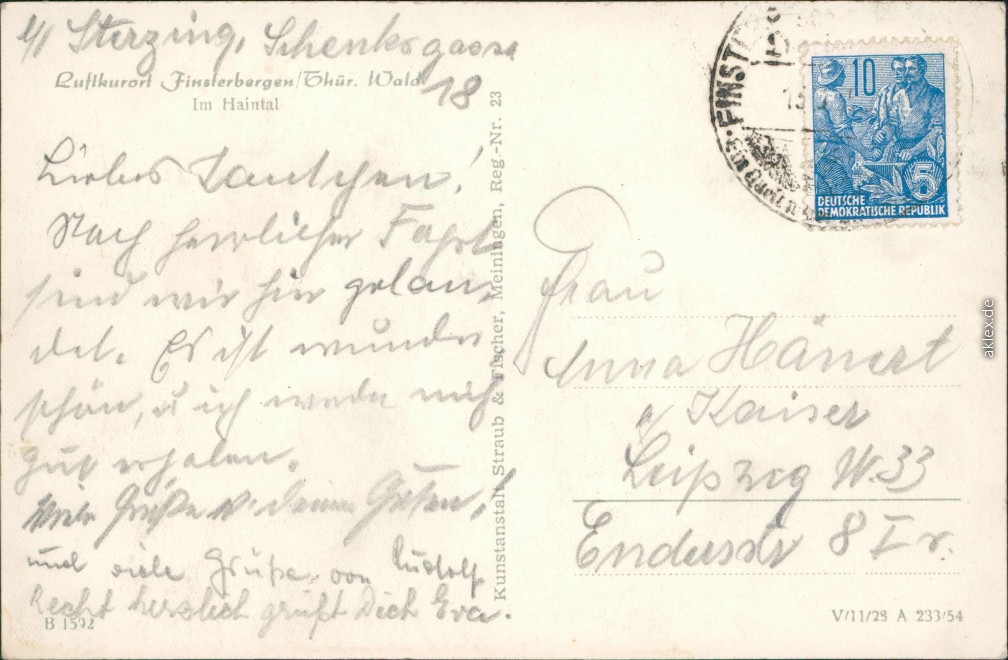 b/ Sterzing, Schenksgasse
18
Luftkurort Finsterbergen/Thür. Wald
Im Haintal
Liebes Tantchen!
Nach herrlicher Fahrt
sind wir hier gelan-
det. Es ist wunder
schön, u ich werde mich
gut erholen.
Viele Grüße v. deinen Guten!
und viele Grüße von Rudolf
Recht herzlich grüßt Dich Eva.
B 1592
Kunstanstalt Straub & Fischer, Meiningen, Reg.-Nr. 23
FINST
10
5
DEUTSCHE
DEMOKRATISCHE REPUBLIK
Frau
Anna Hänert
Kaiser
Leipzig W.33
Enderstr 8 I r.
V/11/28 A 233/54
aklex.de